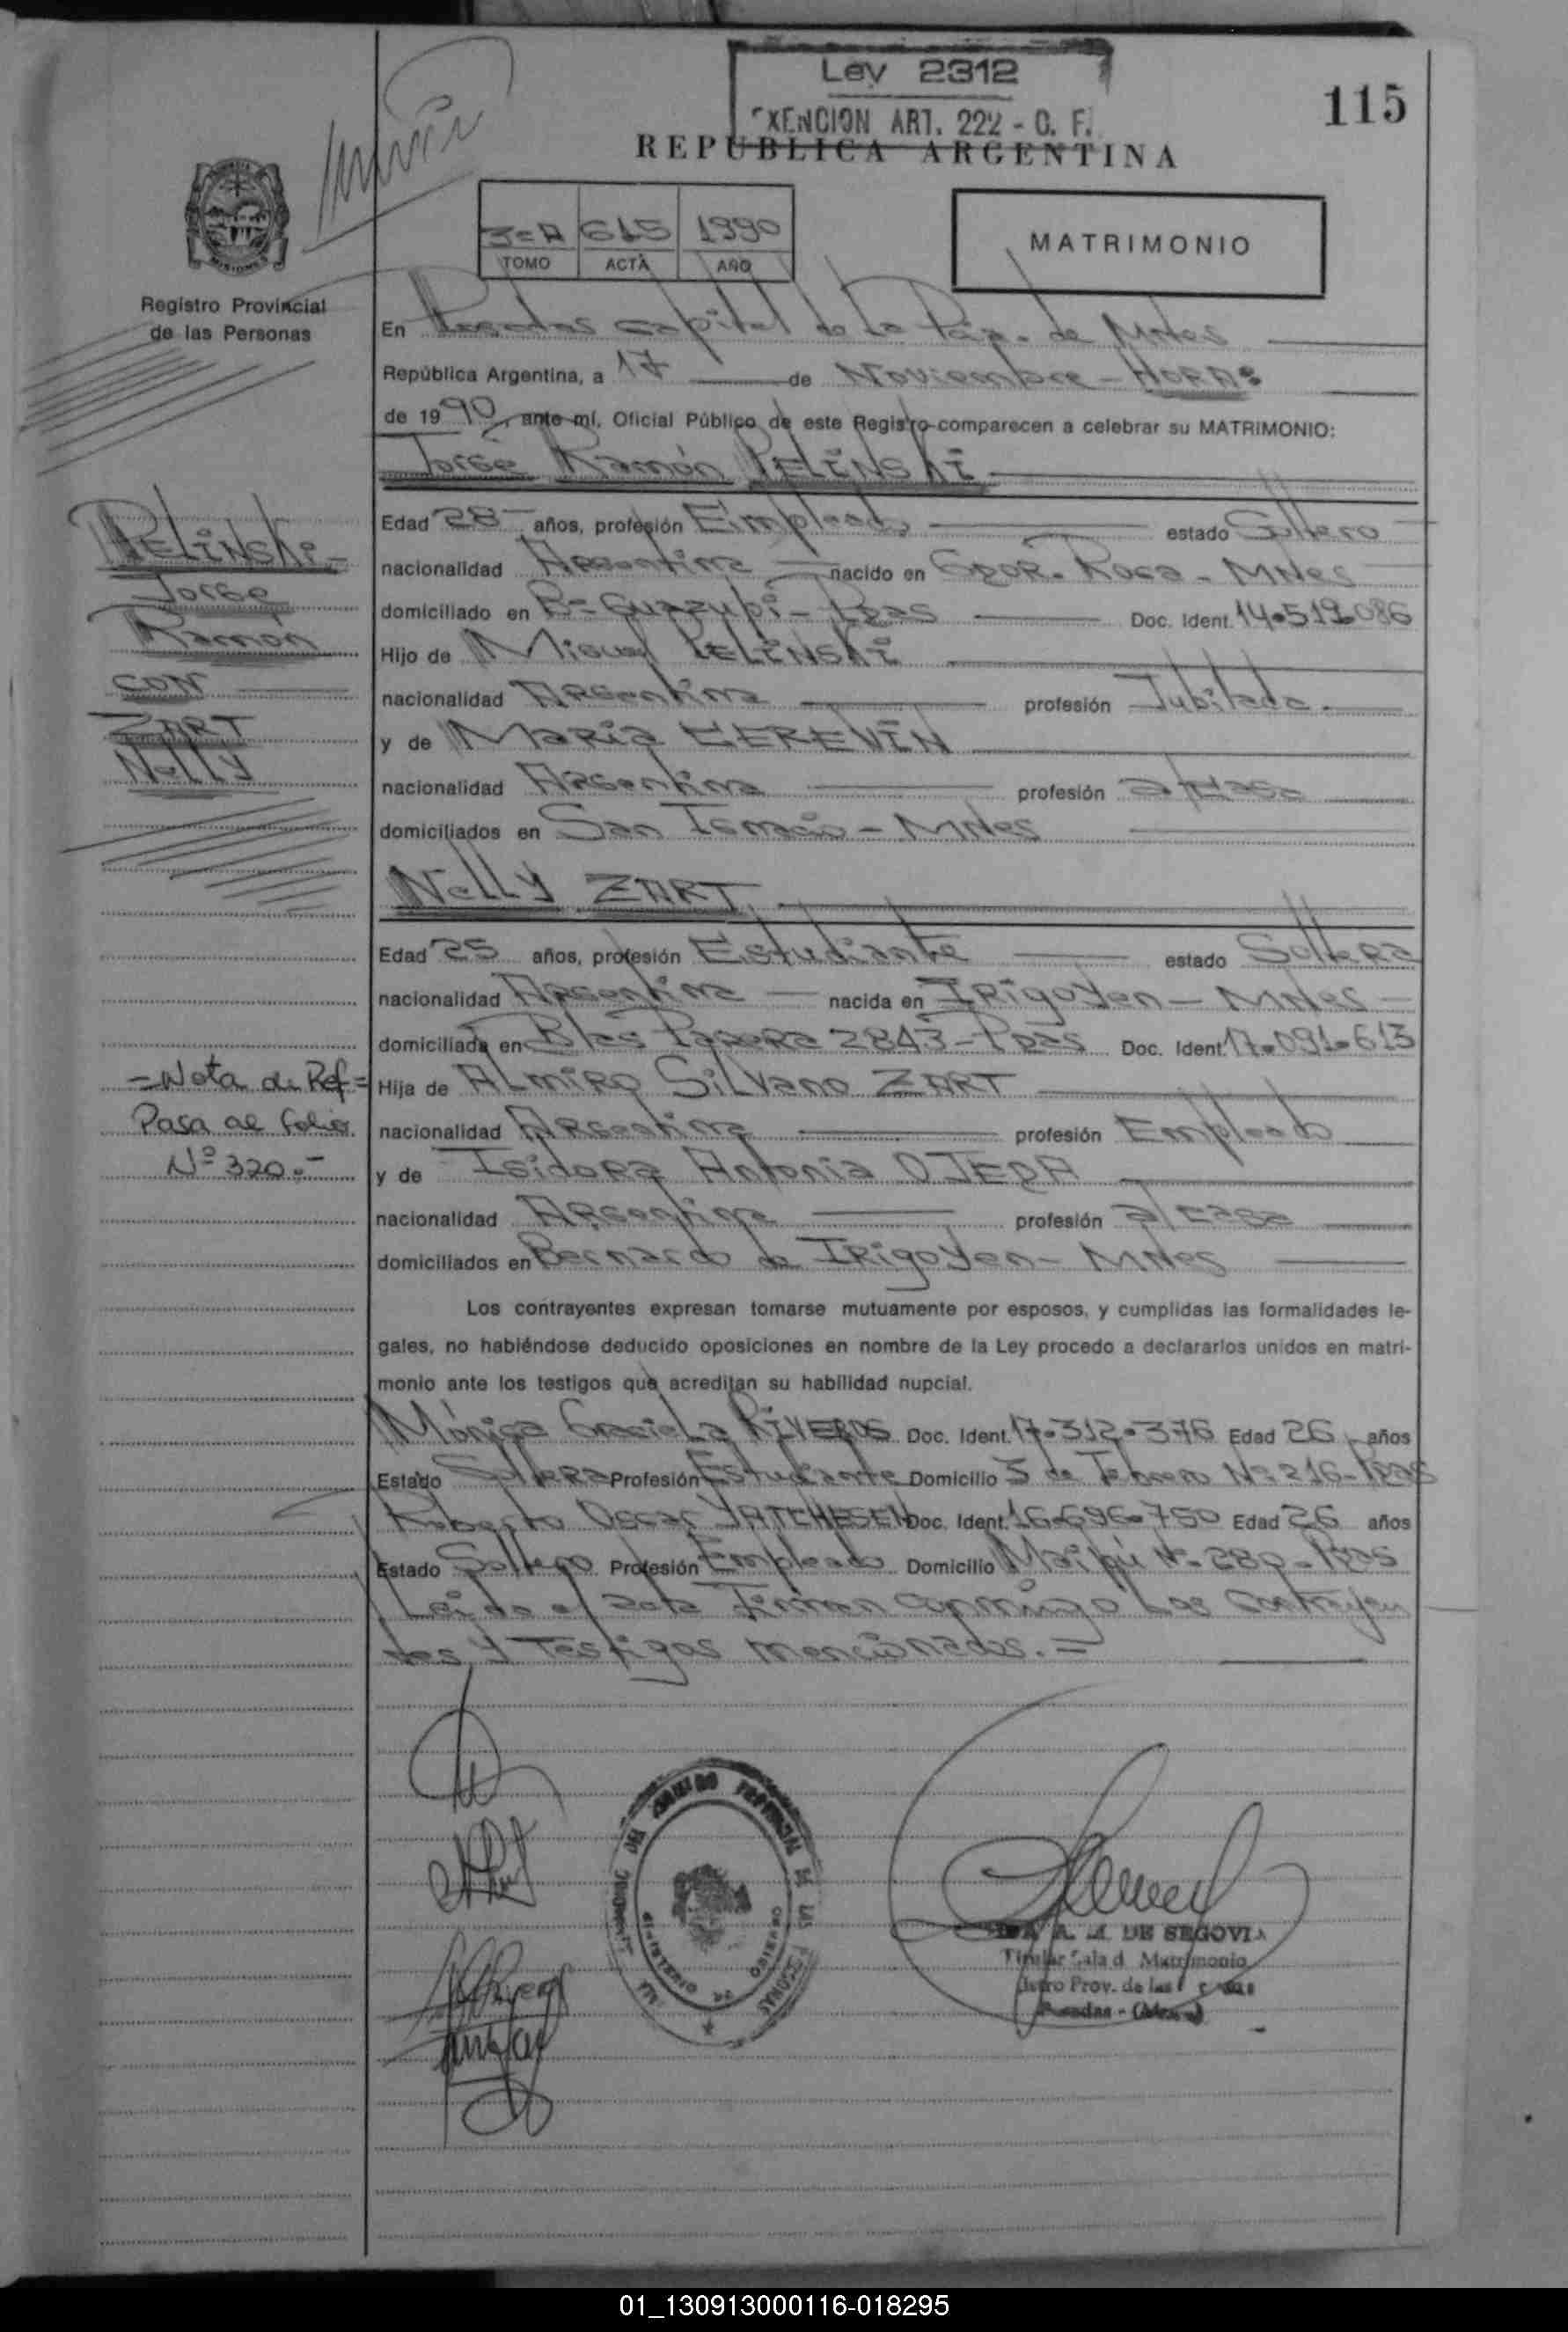 Ley 2312
EXENCION ART. 222 - C. F.
115
REPUBLICA ARGENTINA
3=A 615 1990
TOMO ACTA AÑO
MATRIMONIO
MISIONES
Registro Provincial
de las Personas
En Posadas capital de la Pcia. de Mnes
República Argentina, a 17 de Noviembre - HORA:
de 1990, ante mí, Oficial Público de este Registro comparecen a celebrar su MATRIMONIO:
Jorge Ramón PELINSKI
Edad 28 años, profesión Empleado estado Soltero
nacionalidad Argentina nacido en Gdor. Roca - Mnes
domiciliado en Bº Guazupi - Pdas Doc. Ident. 14.519.086
Hijo de Miguel PELINSKI
nacionalidad Argentina profesión Jubilado.
y de María
nacionalidad Argentina profesión a/casa
domiciliados en San Ignacio - Mnes
Nelly ZART
Edad 25 años, profesión Estudiante estado Soltera
nacionalidad Argentina nacida en Irigoyen - Mnes
domiciliada en Blas Parera 2843 - Pdas Doc. Ident. 17.091.613
Hija de Almiro Silvano ZART
nacionalidad Argentina profesión Empleado
y de Isidora Antonia OJEDA
nacionalidad Argentina profesión a/casa
domiciliados en Bernardo de Irigoyen - Mnes
Los contrayentes expresan tomarse mutuamente por esposos, y cumplidas las formalidades le-
gales, no habiéndose deducido oposiciones en nombre de la Ley procedo a declararlos unidos en matri-
monio ante los testigos que acreditan su habilidad nupcial.
Mónica Graciela RIVEROS Doc. Ident. 17.312.376 Edad 26 años
Estado Soltera Profesión Estudiante Domicilio 3 de Febrero Nº 216 - Pdas
Roberto Oscar YATCHESEN Doc. Ident. 16.696.750 Edad 26 años
Estado Soltero Profesión Empleado Domicilio Maipú Nº 280 - Pdas
Leida el acta Firman conmigo los Contrayen
tes y Testigos mencionados. =
PELINSKI -
Jorge
Ramón
CON
ZART
Nelly
= Nota de Ref =
Pasa al folio
Nº 320.-
A. M. DE SEGOVIA
Titular Sala d Matrimonio
Prov. de las
Posadas - (Mnes)
01_130913000116-018295